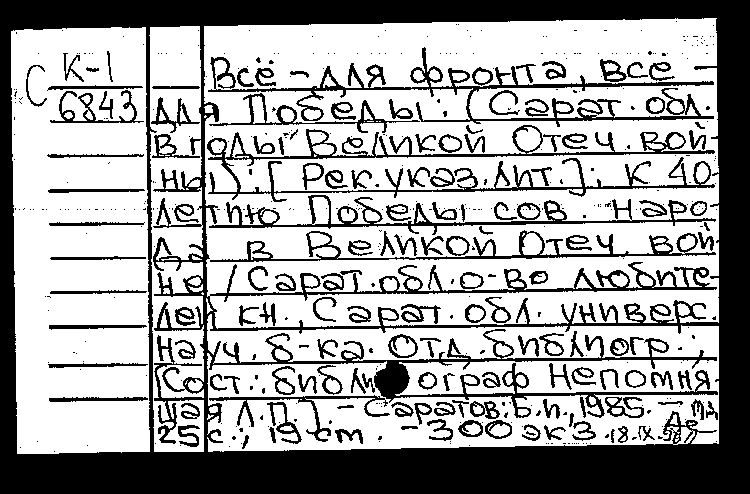 С К-1 Всё - для фронта, всё -
6843 для Победы : (Сарат. обл.
в годы Великой Отеч. вой-
ны) : [Рек. указ. лит.] : К 40-
летию Победы сов. наро-
да в Великой Отеч. вой-
не / Сарат. обл. о-во любите-
лей кн., Сарат. обл. универс.
науч. б-ка. Отд. библиогр. ;
[Сост.: библиограф Непомня-
щая Л.П.]. - Саратов: Б.и., 1985. -
25 с.; 19 cm. - 300 экз. 18.IX.